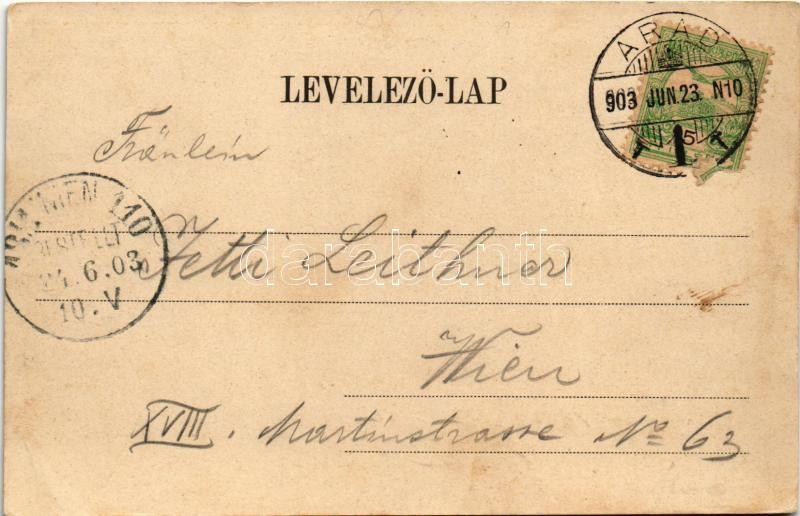 ARAD
903 JUN.23. N10
LEVELEZŐ-LAP
Fräulein
WIEN 110
BESTELLT
24.6.03
10.V
Jetti Leithner
darabanth
Wien
XVIII. Martinstrasse No 63